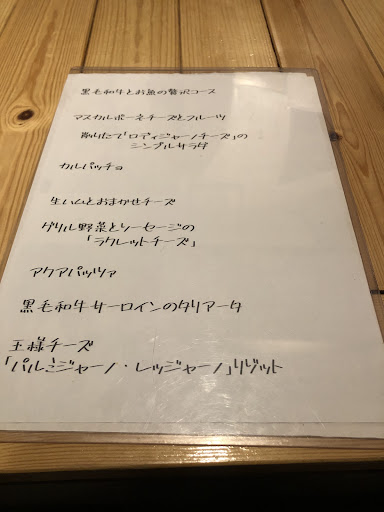 黒毛和牛とお魚の贅沢コース
マスカルポーネチーズとフルーツ
削りたて「ロディジャーノチーズ」の
シンプルサラダ
カルパッチョ
生ハムとおまかせチーズ
グリル野菜とソーセージの
「ラクレットチーズ」
アクアパッツァ
黒毛和牛サーロインのタリアータ
王様チーズ
「パルミジャーノ・レッジャーノ」リゾット